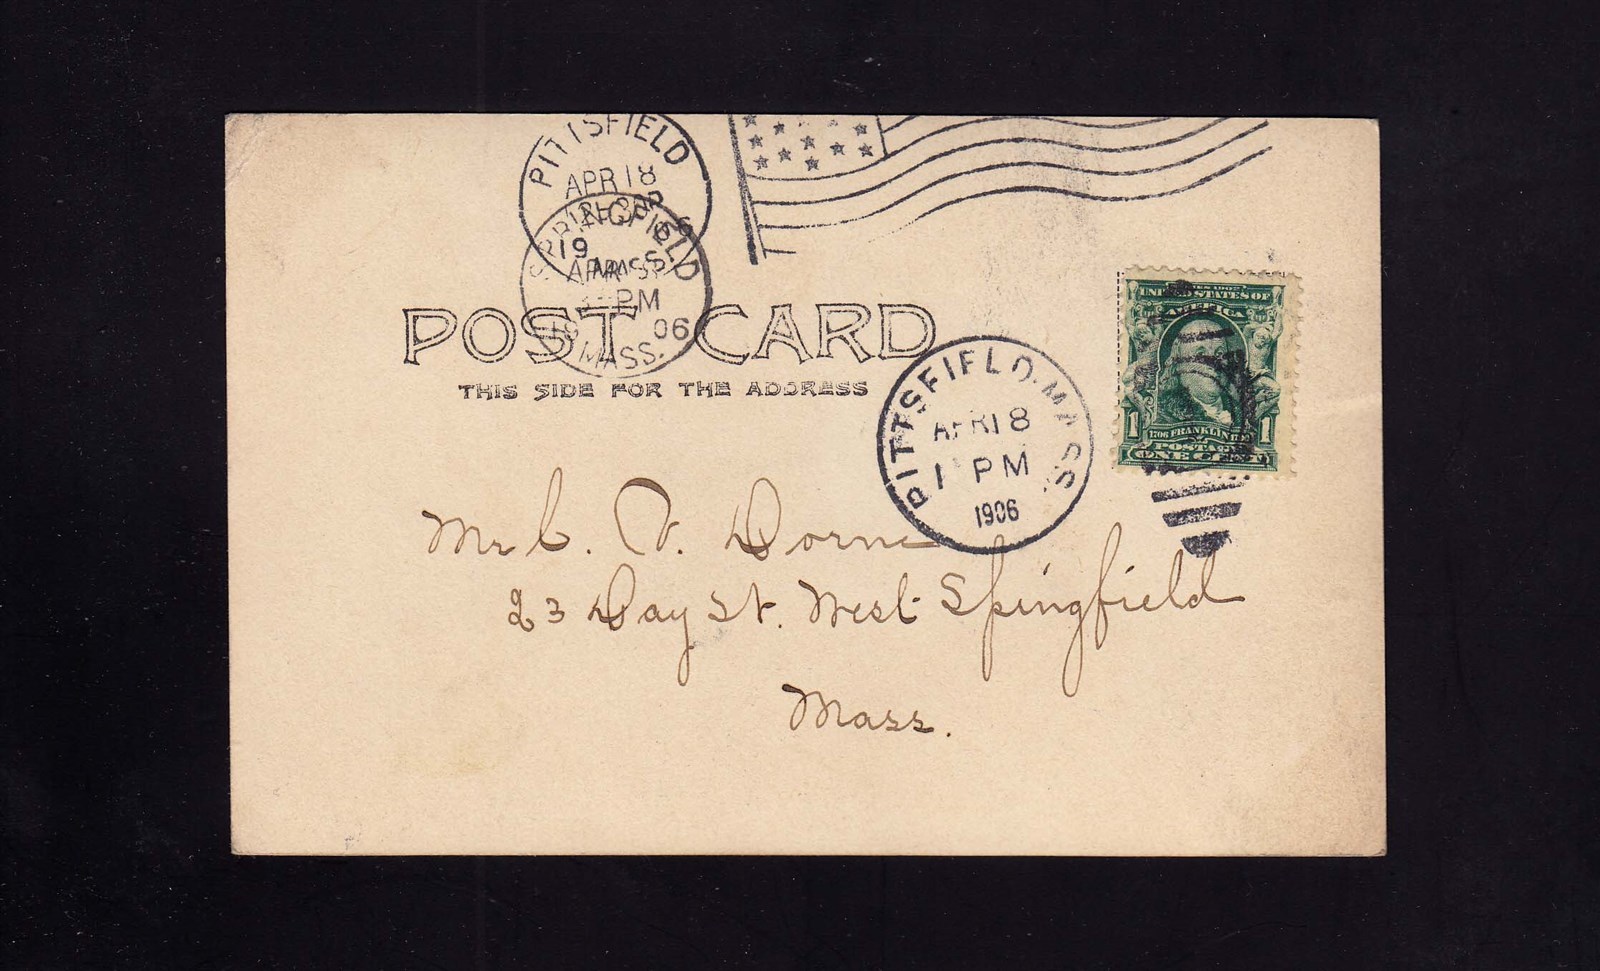 PITTSFIELD
APR 18
SPRINGFIELD
19
PM
06
MASS.
POST CARD
THIS SIDE FOR THE ADDRESS
PITTSFIELD. MASS.
APR 18
1 PM
1906
UNITED STATES OF
AMERICA
1 1706 FRANKLIN 1790 1
POSTAGE
ONE CENT
Mr C. V. Dorne
23 Day St. West Spingfield
Mass.